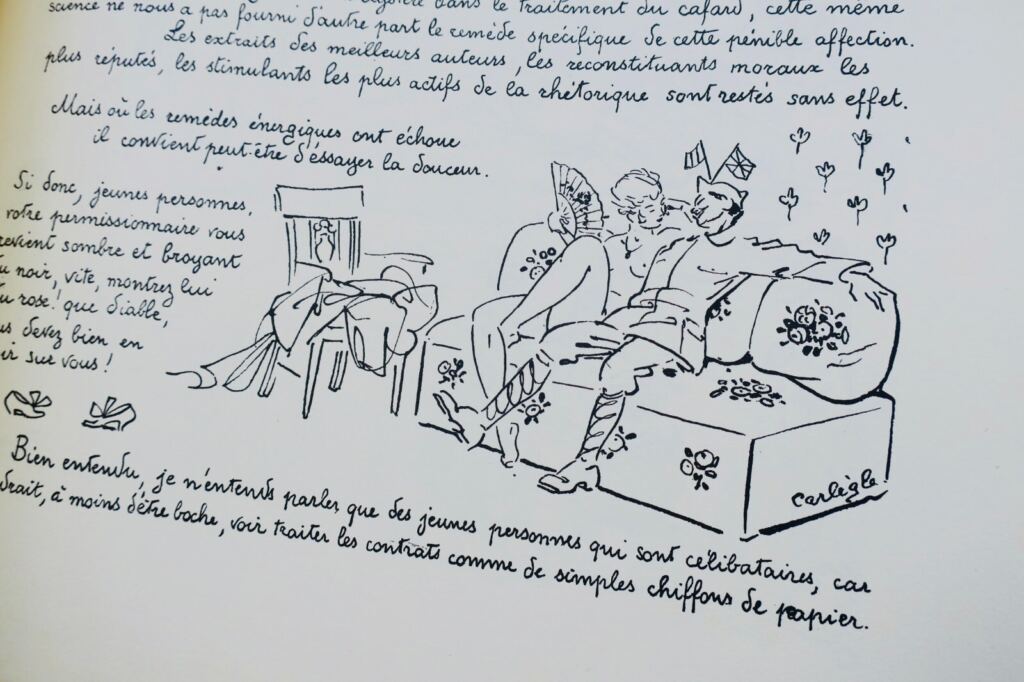 science ne nous a pas fourni d'autre part le remède spécifique de cette pénible affection.
dans le traitement du cafard, cette même
Les extraits des meilleurs auteurs, les reconstituants moraux les
plus réputés, les stimulants les plus actifs de la rhétorique sont restés sans effet.
Mais où les remèdes énergiques ont échoue
il convient peut-être d'éssayer la douceur.
Si donc, jeunes personnes,
votre permissionnaire vous
revient sombre et broyant
du noir, vite, montrez lui
du rose! que diable,
devez bien en
sur vous!
Carlègle
Bien entendu, je n'entends parler que des jeunes personnes qui sont célibataires, car
à moins d'être boche, voir traiter les contrats comme de simples chiffons de papier.